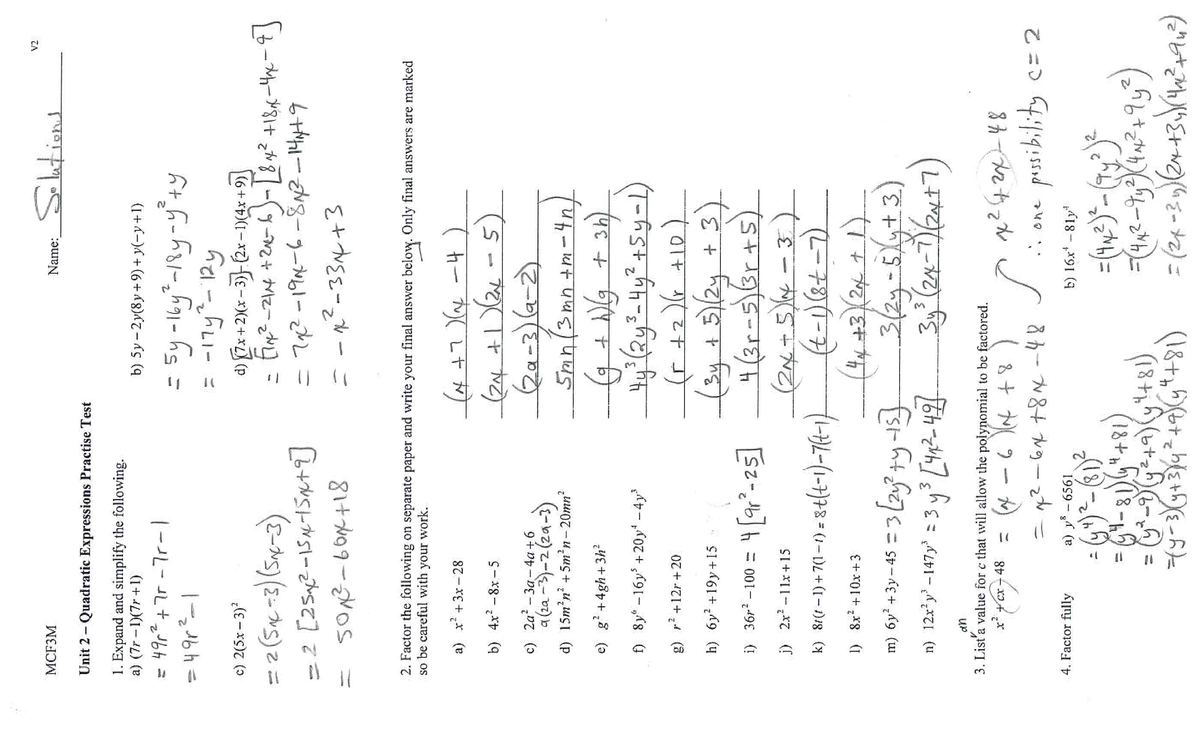 MCF3M
Name: Solutions
V2
Unit 2 – Quadratic Expressions Practise Test
1. Expand and simplify the following.
a) (7r – 1)(7r + 1)
= 49r² + 7r – 7r – 1
= 49r² – 1
b) 5y – 2y(8y + 9) + y(–y + 1)
= 5y – 16y² – 18y – y² + y
= –17y² – 12y
c) 2(5x – 3)²
= 2(5x – 3)(5x – 3)
= 2[25x² – 15x – 15x + 9]
= 50x² – 60x + 18
d) [(7x + 2)(x – 3)] – [(2x – 1)(4x + 9)]
= [7x² – 21x + 2x – 6] – [8x² + 18x – 4x – 9]
= 7x² – 19x – 6 – 8x² – 14x + 9
= – x² – 33x + 3
2. Factor the following on separate paper and write your final answer below. Only final answers are marked
so be careful with your work.
a) x² + 3x – 28 (x + 7)(x – 4)
b) 4x² – 8x – 5 (2x + 1)(2x – 5)
c) 2a² – 3a – 4a + 6 (2a – 3)(a – 2)
a(2a – 3) – 2(2a – 3)
d) 15m²n² + 5m²n – 20mn² 5mn(3mn + m – 4n)
e) g² + 4gh + 3h² (g + h)(g + 3h)
f) 8y⁶ – 16y⁵ + 20y⁴ – 4y³ 4y³(2y³ – 4y² + 5y – 1)
g) r² + 12r + 20 (r + 2)(r + 10)
h) 6y² + 19y + 15 (3y + 5)(2y + 3)
i) 36r² – 100 = 4[9r² – 25] 4(3r – 5)(3r + 5)
j) 2x² – 11x + 15 (2x + 5)(x – 3)
k) 8t(t – 1) + 7(1 – t) = 8t(t – 1) – 7(t – 1) (t – 1)(8t – 7)
l) 8x² + 10x + 3 (4x + 3)(2x + 1)
m) 6y² + 3y – 45 = 3[2y² + y – 15] 3(2y – 5)(y + 3)
n) 12x²y³ – 147y³ = 3y³[4x² – 49] 3y³(2x – 7)(2x + 7)
3. List an a value for c that will allow the polynomial to be factored.
x² + cx – 48 = (x – 6)(x + 8)
= x² – 6x + 8x – 48
x² + 2x – 48
∴ one possibility c = 2
4. Factor fully
a) y⁸ – 6561
= (y⁴)² – (81)²
= (y⁴ – 81)(y⁴ + 81)
= (y² – 9)(y² + 9)(y⁴ + 81)
= (y – 3)(y + 3)(y² + 9)(y⁴ + 81)
b) 16x⁴ – 81y⁴
= (4x²)² – (9y²)²
= (4x² – 9y²)(4x² + 9y²)
= (2x – 3y)(2x + 3y)(4x² + 9y²)